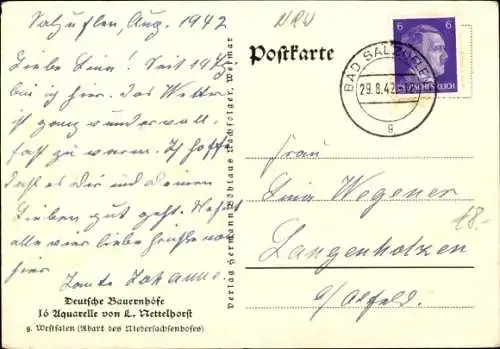 Salzuflen, Aug. 1942
Liebe Lina! Seit 14 Tg.
bin ich hier. Das Wetter
ist ganz wundervoll,
fast zu warm. Ich hoffe
daß es dir und deinen
Lieben gut geht. Nehmt
alle vier liebe Grüße von
hier Tante Johanne.
Deutsche Bauernhöfe
16 Aquarelle von L. Nettelhorst
9. Westfalen (Abart des Niedersachsenhofes)
Verlag Hermann Böhlaus Nachfolger, Weimar
NRW
Postkarte
6 6
DEUTSCHES REICH
BAD SALZUFLEN
29.8.42
g
Frau
Lina Wegener
Langenholzen
a/Alfeld.
18-